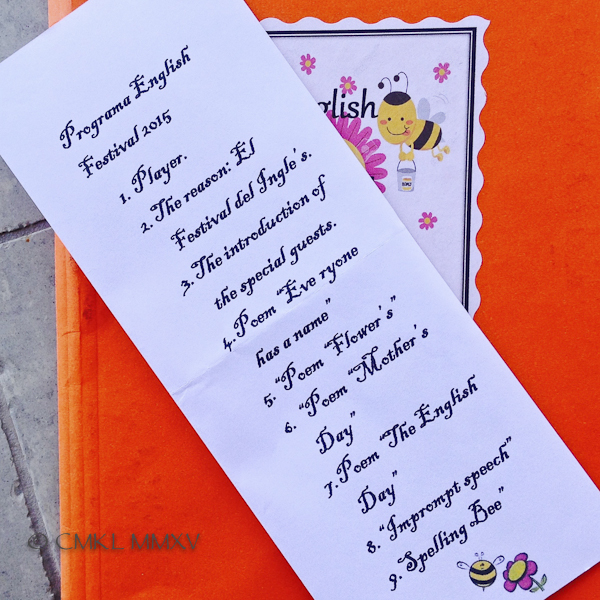 Programa English
Festival 2015
1. Player.
2. The reason: El
Festival del Ingle's.
3. The introduction of
the special guests.
4. Poem "Eve ryone
has a name"
5. "Poem "Flower's"
6. "Poem "Mother's
Day"
7. Poem "The English
Day"
8. "Imprompt speech"
9. Spelling Bee"
nglish
© CMKL MMXV